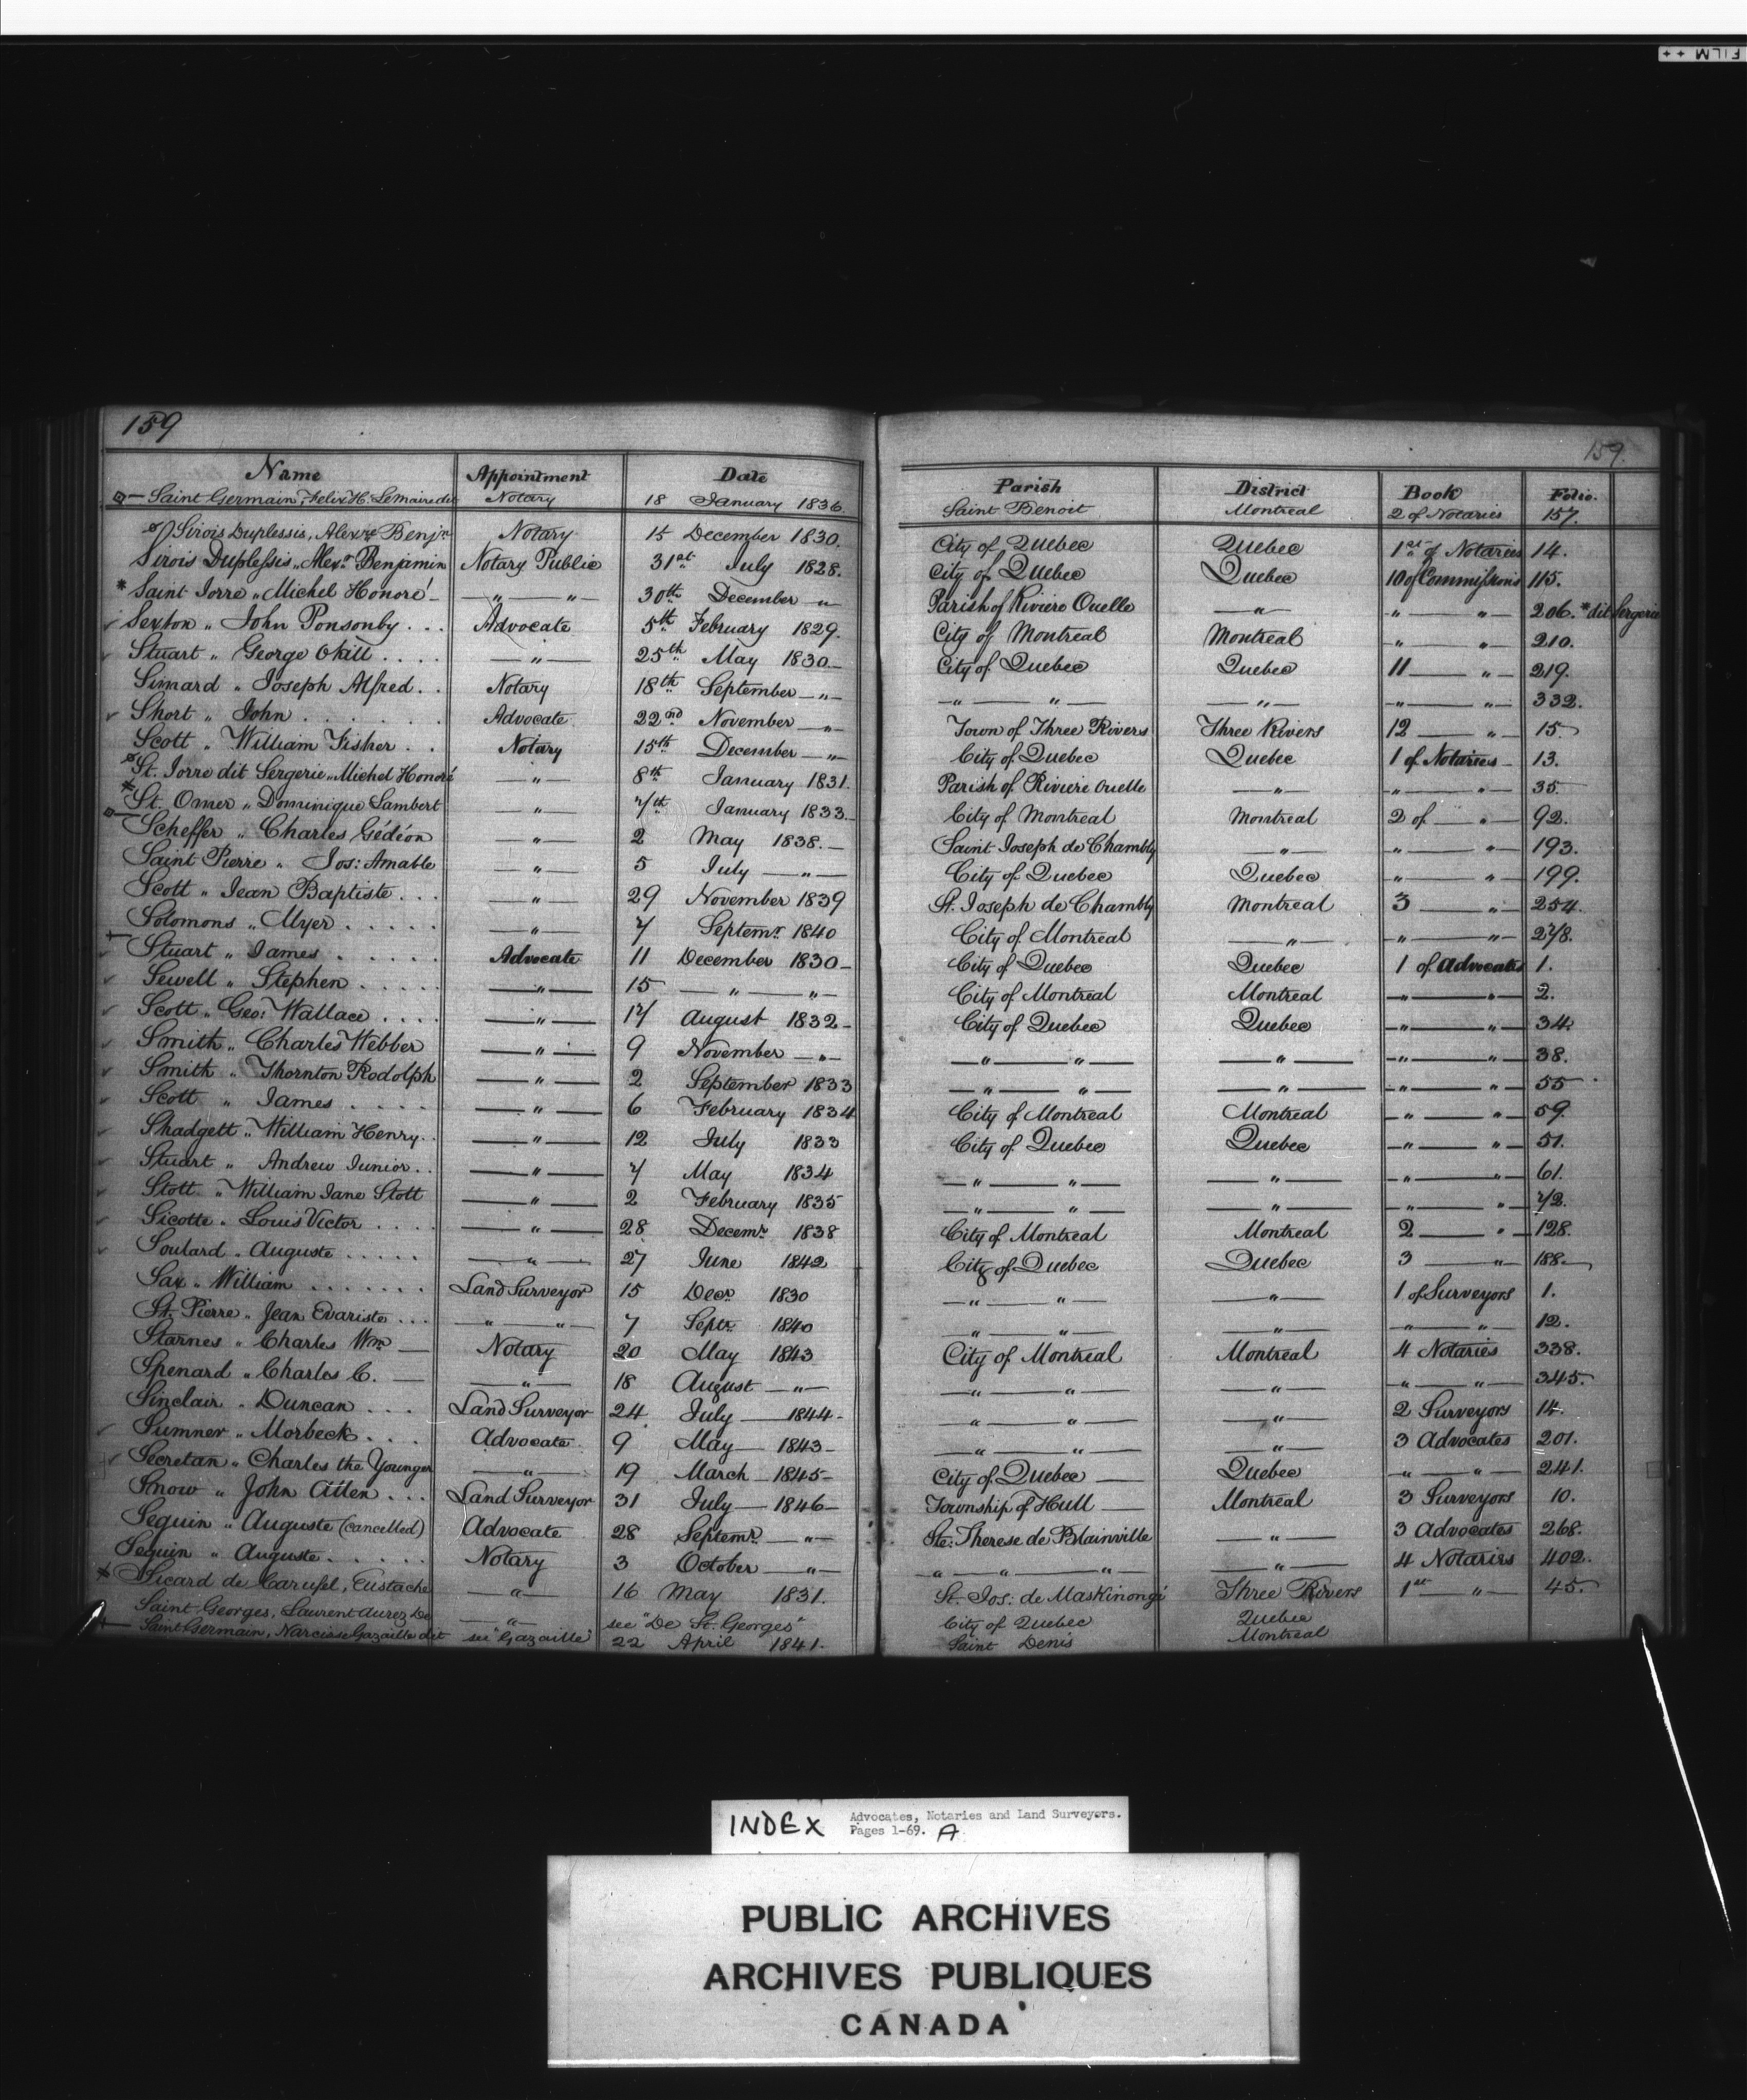 FILM ++
159
159.
Name Appointment Date Parish District Book Folio.
Saint Germain, Felix H. LeMaire dit Notary 18 January 1836. Saint Benoit Montreal 2 of Notaries 157.
Sirois Duplessis, Alexr Benjn Notary 15 December 1830. City of Quebec Quebec 1st of Notaries 14.
Sirois Duplessis, Alexr. Benjamin Notary Public 31st July 1828. City of Quebec Quebec 10 of Commissions 115.
* Saint Jorre " Michel Honoré — " " 30th December " Parish of Riviere Ouelle " " " 206. * dit Sergerie
Sexton " John Ponsonby . . . Advocate 5th February 1829. City of Montreal Montreal " " 210.
Stuart " George Okill . . . . " 25th May 1830. City of Quebec Quebec 11 " 219.
Simard " Joseph Alfred . . Notary 18th September " " " " " " 332.
Short " John . . . . . . Advocate 22nd November " Town of Three Rivers Three Rivers 12 " 15.
Scott " William Fisher . . Notary 15th December " City of Quebec Quebec 1 of Notaries 13.
St. Jorre dit Sergerie " Michel Honoré " 8th January 1831. Parish of Riviere Ouelle " " " 35.
* St. Omer " Dominique Lambert " 7th January 1833. City of Montreal Montreal 2 of " 92.
Scheffer " Charles Gédéon " 2 May 1838. Saint Joseph de Chambly " " " 193.
Saint Pierre " Jos: Amable " 5 July " City of Quebec Quebec " " 199.
Scott " Jean Baptiste . . . " 29 November 1839 St. Joseph de Chambly Montreal 3 " 254.
Solomons " Myer . . . . . " 7 Septemr. 1840 City of Montreal " " " 278.
Stuart " James . . . . . . Advocate 11 December 1830 City of Quebec Quebec 1 of Advocates 1.
Sewell " Stephen . . . . . " 15 " " City of Montreal Montreal " " 2.
Scott " Geo: Wallace . . . . " 17 August 1832 City of Quebec Quebec " " 34.
Smith " Charles Webber " 9 November " " " " " " 38.
Smith " Thornton Rodolph " 2 September 1833 " " " " " 55
Scott " James . . . . " 6 February 1834 City of Montreal Montreal " " 59.
Shadgett " William Henry . . " 12 July 1833 City of Quebec Quebec " " 51.
Stuart " Andrew Junior . . " 7 May 1834 " " " " " 61.
Stott " William Jane Stott " 2 February 1835 " " " " " 72.
Sicotte " Louis Victor . . . . " 28 Decemr. 1838 City of Montreal Montreal 2 " 128.
Soulard " Auguste . . . . . " 27 June 1842 City of Quebec Quebec 3 " 188.
Sax " William . . . . . . . Land Surveyor 15 Decr. 1830 " " " 1 of Surveyors 1.
St. Pierre " Jean Evariste . . . " " 7 Septr. 1840 " " " " " 12.
Starnes " Charles Wm. Notary 20 May 1843 City of Montreal Montreal 4 Notaries 338.
Spenard " Charles C. " 18 August " " " " " " 345.
Sinclair " Duncan . . . Land Surveyor 24 July 1844 " " " 2 Surveyors 14.
Sumner " Morbeck . . . Advocate 9 May 1843 " " " 3 Advocates 201.
Secretan " Charles the Younger " 19 March 1845 City of Quebec Quebec " " 241.
Snow " John Allen . . . Land Surveyor 31 July 1846 Township of Hull Montreal 3 Surveyors 10.
Seguin " Auguste (cancelled) Advocate 28 Septemr. " Ste: Therese de Blainville " 3 Advocates 268.
Seguin " Auguste . . . . . Notary 3 October " " " " " 4 Notaries 402.
* Sicard de Carufel, Eustache " 16 May 1831. St. Jos: de Maskinongé Three Rivers 1st " 45.
Saint Georges, Laurent Aurez De " see "De St. Georges" City of Quebec Quebec
Saint Germain, Narcisse Gazaille dit see "Gazaille" 22 April 1841. Saint Denis Montreal
INDEX Advocates, Notaries and Land Surveyors.
Pages 1-69. A
PUBLIC ARCHIVES
ARCHIVES PUBLIQUES
CANADA